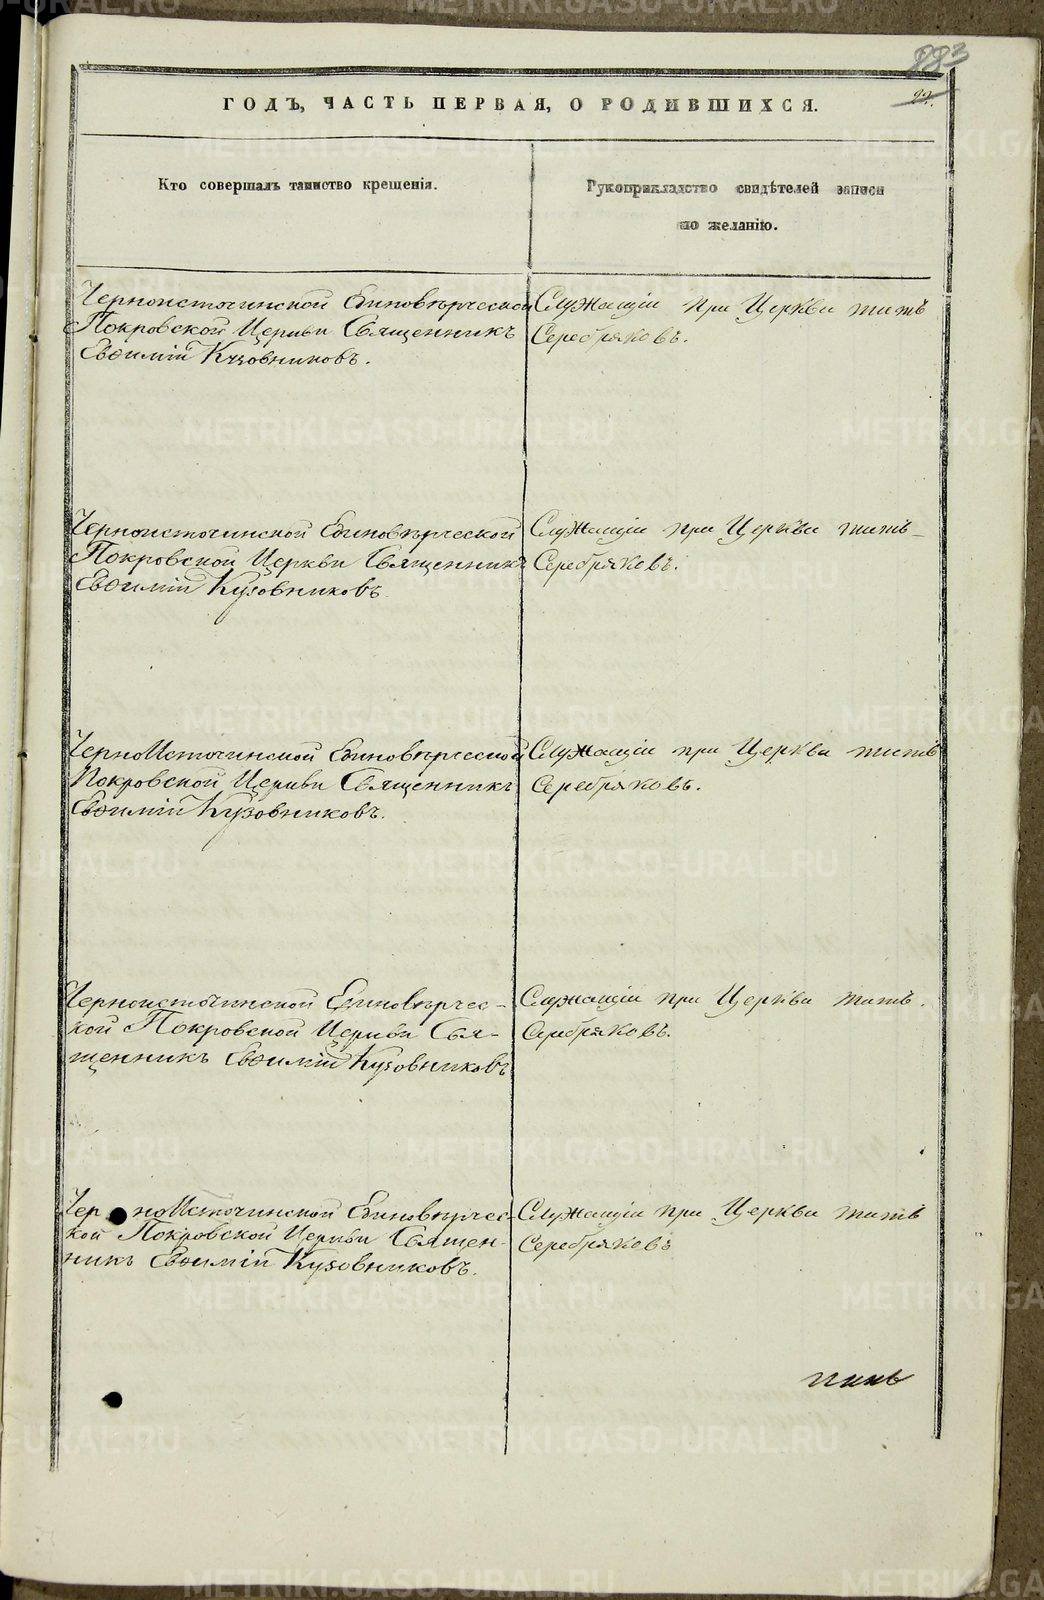 883
22.
ГОДЪ, ЧАСТЬ ПЕРВАЯ, О РОДИВШИХСЯ.
Кто совершалъ таинство крещенія.
Рукоприкладство свидѣтелей записи
по желанію.
Черноисточинской Единовѣрческой
Покровской Церкви Священникъ
Евѳимій Кузовниковъ.
Служащіи при Церкви Титъ
Серебряковъ.
Черноисточинской Единовѣрческой
Покровской Церкви Священникъ
Евѳимій Кузовниковъ.
Служащіи при Церкви Титъ
Серебряковъ.
ЧерноИсточинской Единовѣрческой
Покровской Церкви Священникъ
Евѳимій Кузовниковъ.
Служащіи при Церкви Титъ
Серебряковъ.
Черноисточинской Единовѣрчес-
кой Покровской Церкви Свя-
щенникъ Евѳимій Кузовниковъ
Служащіи при Церкви Титъ.
Серебряковъ.
ЧерноИсточинской Единовѣрчес-
кой Покровской Церкви Священ-
никъ Евѳимій Кузовниковъ.
Служащіи при Церкви Титъ
Серебряковъ
METRIKI.GASO-URAL.RU